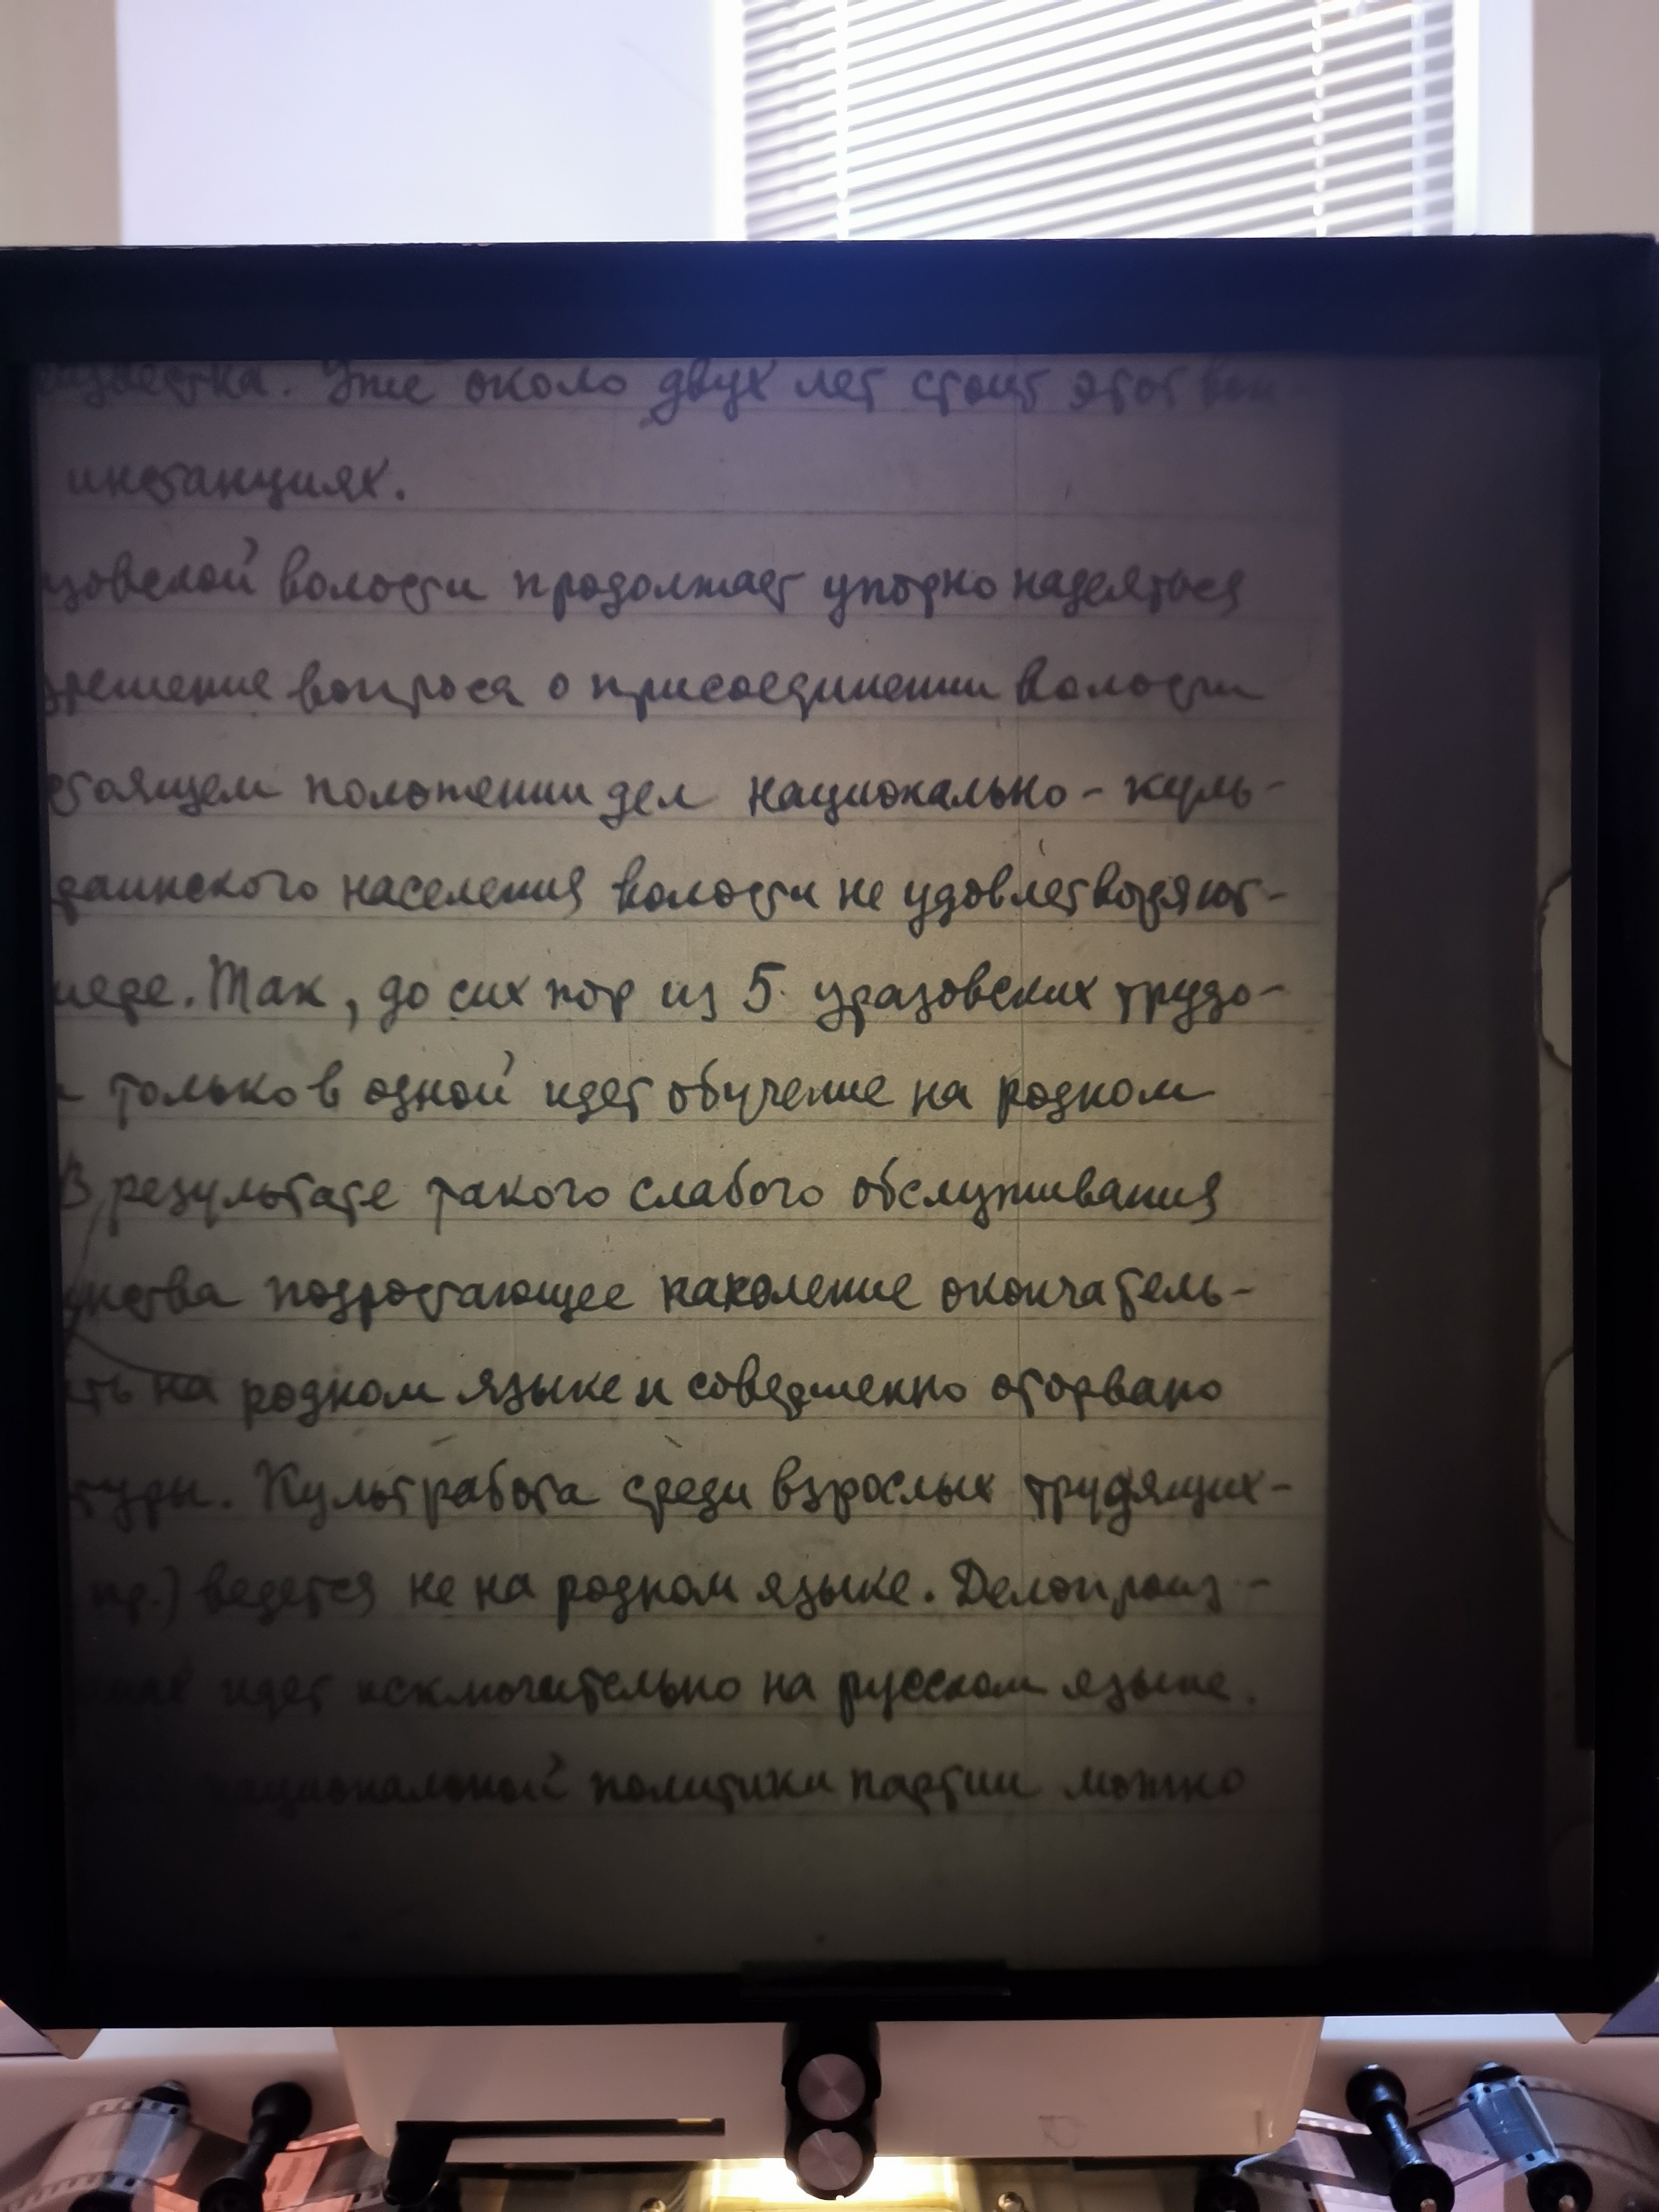 Уже около двух лет стоит этот воп-
инстанциях.
зовской волости продолжает упорно надеяться
зрешение вопроса о присоединении волости
стоящем положении дел национально-куль-
раинского населения волости не удовлетворяют-
мере. Так, до сих пор из 5 уразовских трудо-
только в одной идет обучение на родном
В результате такого слабого обслуживания
инства подростающее поколение окончатель-
ать на родном языке и совершенно оторвано
туры. Культработа среди взрослых трудящих-
пр.) ведется не на родном языке. Делопроиз-
идет исключительно на русском языке.
национальной политики партии можно